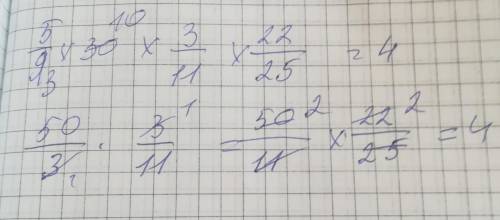 5/9 3 x 30 10 x 3/11 x 22/25 = 4
50/3 1 · 3 1/11 = 50 2/11 x 22 2/25 = 4